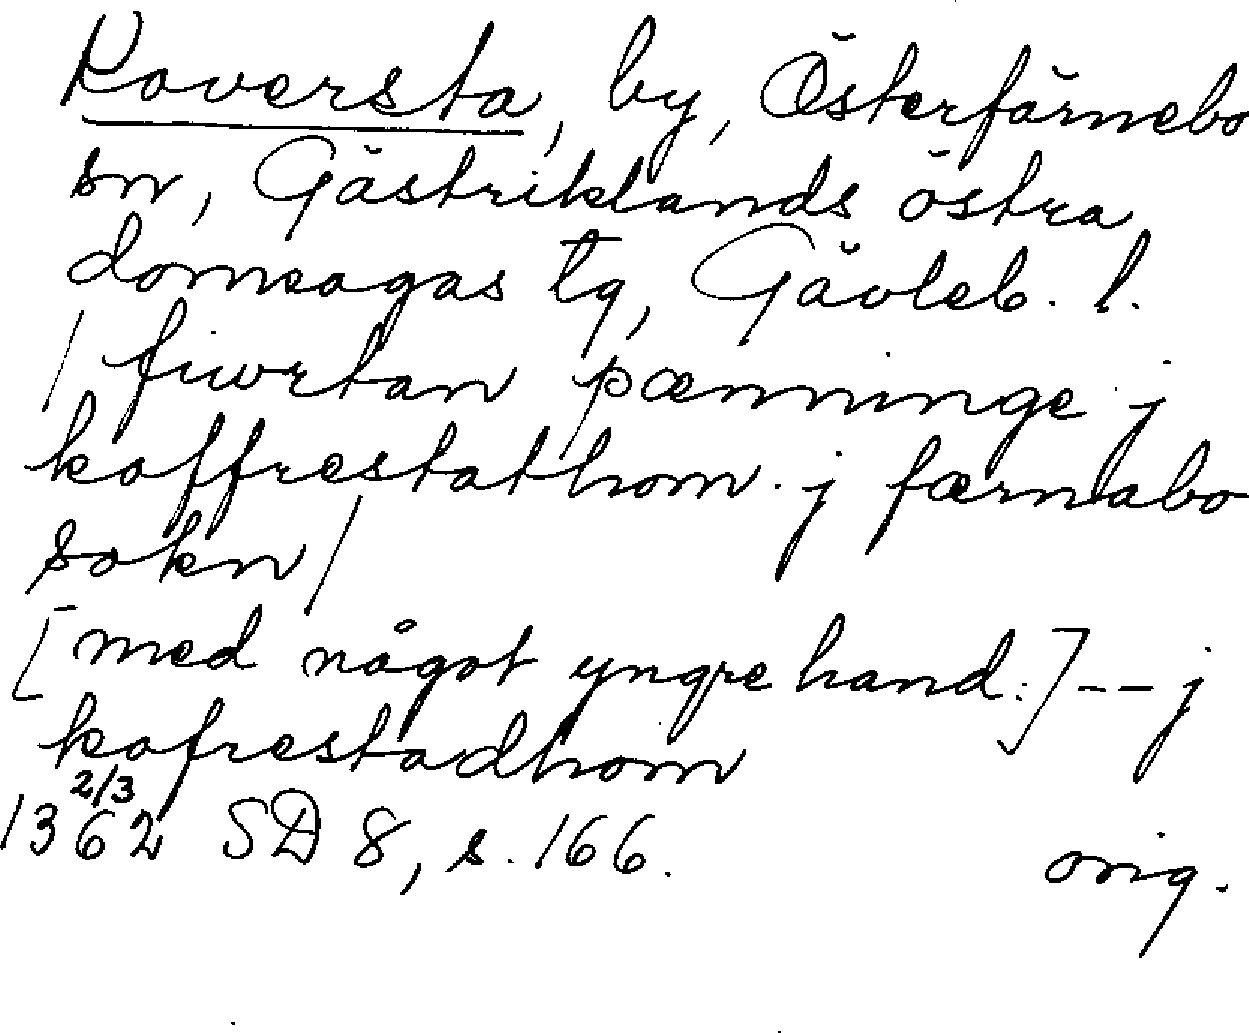 Koversta, by, Österfärnebo
sn, Gästriklands östra
domsagas tg, Gävleb. l.
/ fiwrtan pænninge j
koffrestathom j færnabo
sokn/
[med något yngre hand:] -- j
kofrestadhom
2/3
1362 SD 8, s. 166. orig.